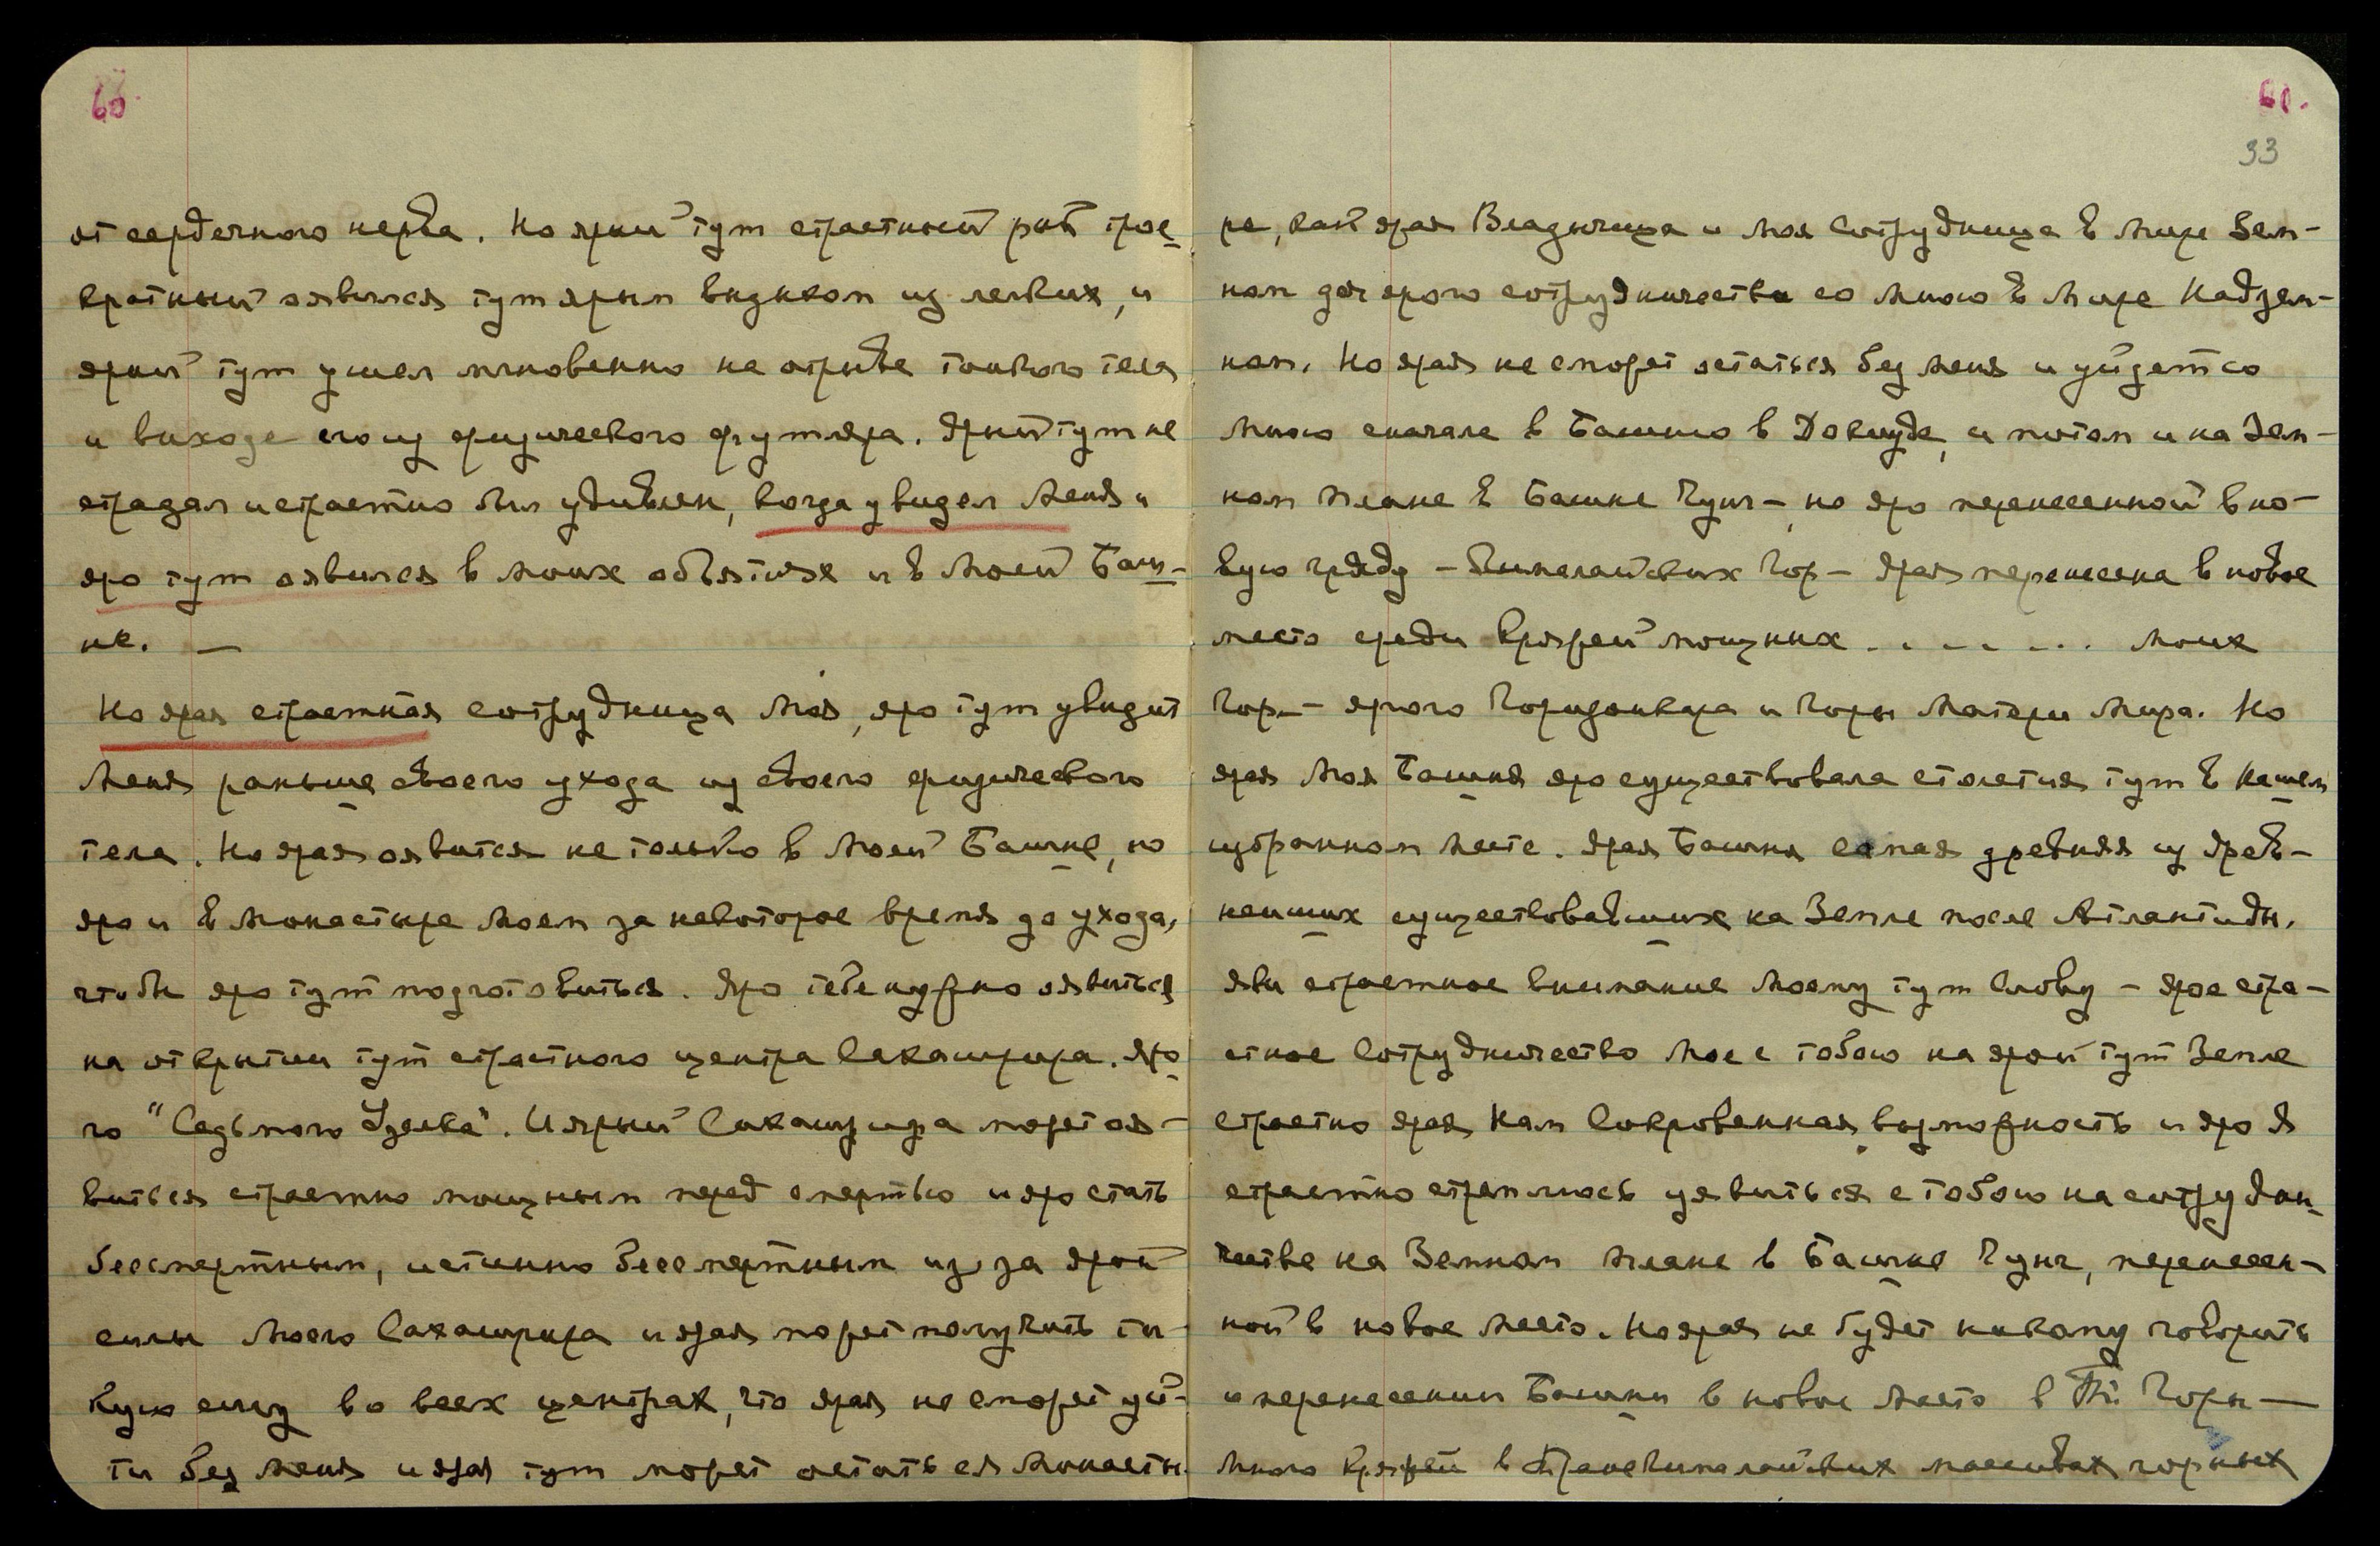 60
от сердечного нерва. Но ярый тут страстный рит трое
кратный оявился тут ярым видиком из легких, и
ярый тут ушел мгновенно на отрыве тонкого тела
и выходе его из физического футляра. Ярый тут не
страдал и страстно был удивлен, когда увидел Меня и
яро тут оявился в моих объятиях и в Моей Баш-
не. —
Но ярая страстная сотрудница Моя, яро тут увидит
Меня раньше своего ухода из своего физического
тела. Но ярая оявится не только в Моей Башне, но
яро и в Монастыре Моем за некоторое время до ухода,
чтобы яро тут подготовиться. Яро тебе нужно оявиться
на открытии тут страстного центра Сахасрара. Яро
го "Седьмого Узелка". И ярый Сахасрара может оя-
виться страстно мощным перед смертью и яро стать
бессмертным, истинно бессмертным из за ярой
силы Моего Сахасрара и ярая может получить та-
кую силу во всех центрах, что ярая не сможет уй-
ти без Меня и ярая тут может остаться в Монасты-
61.
33
ре, как ярая Владычица и Моя Сотрудница в Мире Зем-
ном для ярого сотрудничества со Мною в Мире Надзем-
ном. Но ярая не сможет остаться без Меня и уйдет со
Мною сначала в Башню в Докиуде, и потом и на Зем-
ном плане в Башне Чунг — но яро перенесенной в но-
вую гряду — Гималайских Гор — Ярая перенесена в новое
место среди кряжей мощных . . . . . . Моих
Гор — ярого Гоуризанкара и Горы Матери Мира. Но
ярая Моя Башня яро существовала столетия тут в Нашем
избранном месте. Ярая Башня самая древняя из древ-
нейших существовавших на Земле после Атлантиды.
Яви страстное внимание Моему тут Слову — ярое стра-
стное Сотрудничество Мое с тобою на ярой тут Земле
страстно ярая Нам Сокровенная возможность и яро Я
страстно стремлюсь уявиться с тобою на сотрудни
честве на Земном плане в Башне Чунг, перенесен-
ной в новое место. Но ярая не будет никому говорить
о перенесении Башни в новое место в Горы —
Много кряжей в Трансгималайских массивах горных